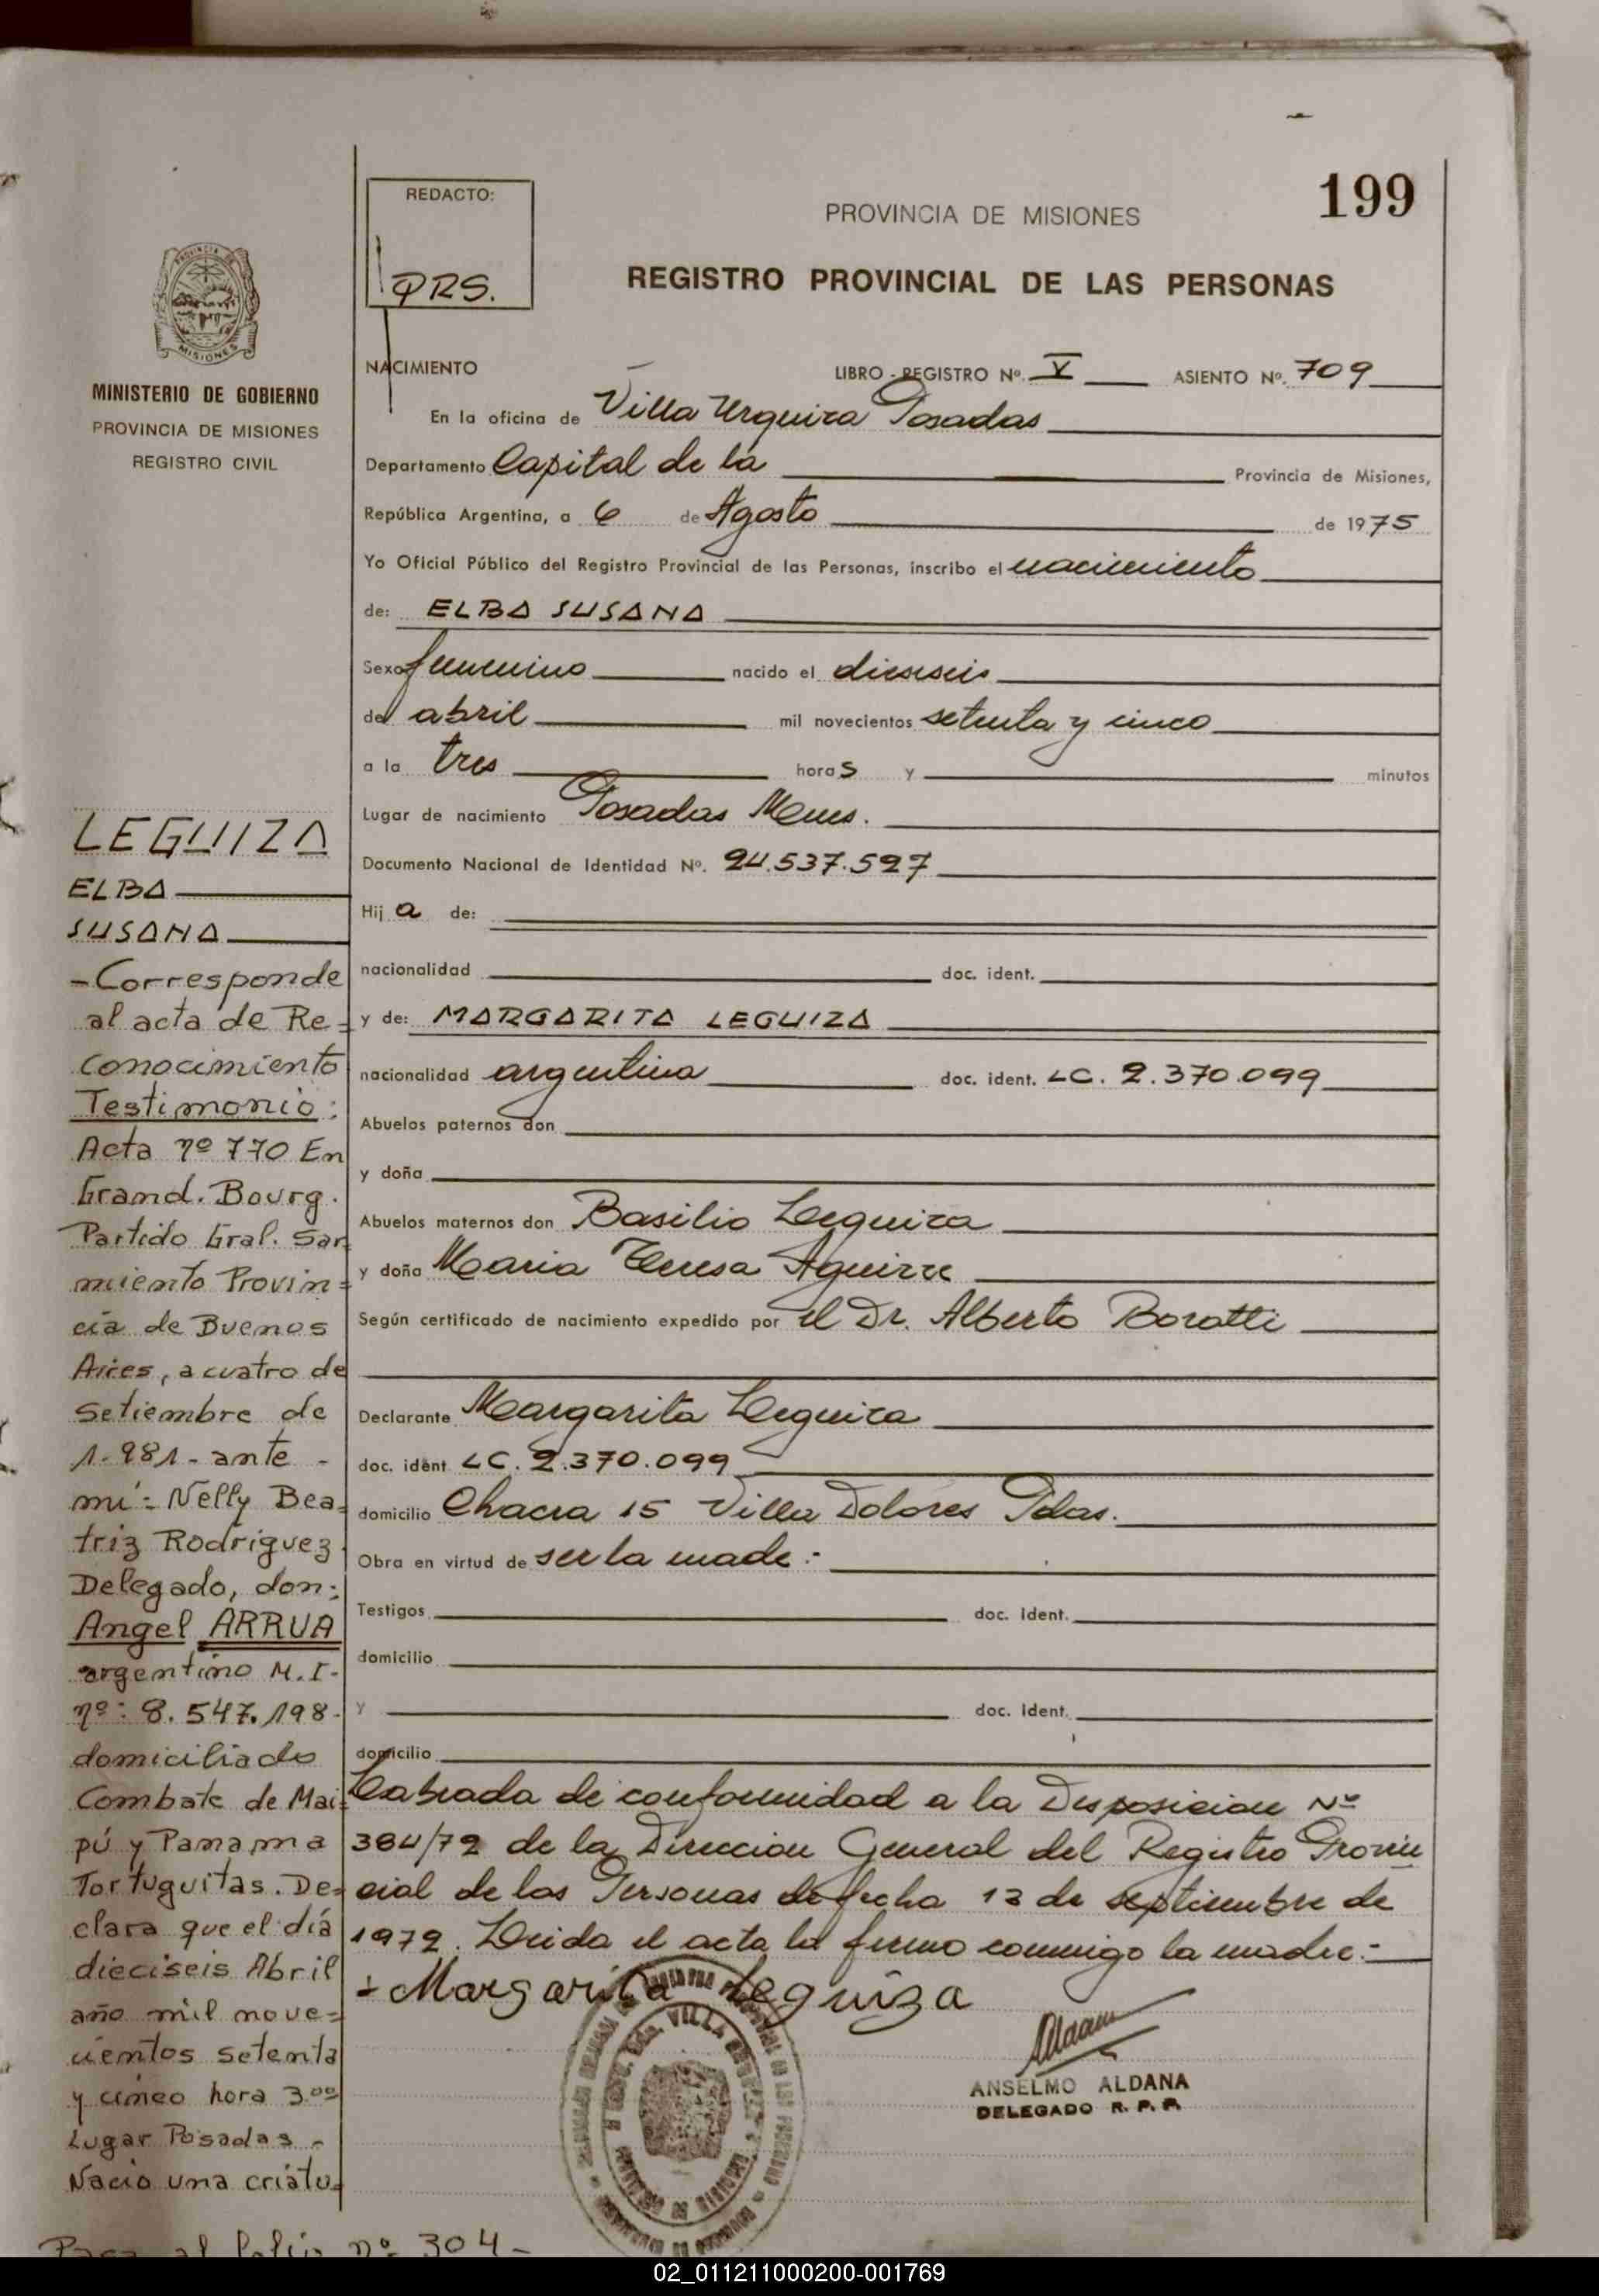 199
REDACTO:
PRS.
PROVINCIA DE MISIONES
REGISTRO PROVINCIAL DE LAS PERSONAS
MISIONES
MINISTERIO DE GOBIERNO
PROVINCIA DE MISIONES
REGISTRO CIVIL
NACIMIENTO LIBRO - REGISTRO Nº. V ASIENTO Nº. 709
En la oficina de Villa Urquiza Posadas
Departamento Capital de la Provincia de Misiones,
República Argentina, a 6 de Agosto de 1975
Yo Oficial Público del Registro Provincial de las Personas, inscribo el nacimiento
de: ELBA SUSANA
Sexo femenino nacido el dieseseis
de abril mil novecientos setenta y cinco
a la tres horas y minutos
Lugar de nacimiento Posadas Mnes.
Documento Nacional de Identidad Nº. 24.537.527
Hija de:
nacionalidad doc. ident.
y de: MARGARITA LEGUIZA
nacionalidad argentina doc. ident. LC. 2.370.099
Abuelos paternos don
y doña
Abuelos maternos don Basilio Leguiza
y doña Maria Teresa Aguirre
Según certificado de nacimiento expedido por el Dr. Alberto Boratti
Declarante Margarita Leguiza
doc. ident LC. 2.370.099
domicilio Chacra 15 Villa Dolores Pdas.
Obra en virtud de ser la made:-
Testigos doc. ident.
domicilio
y doc. ident.
domicilio
Labrada de conformidad a la Disposicion Nº
384/72 de la Direccion General del Registro Provin
cial de las Personas de fecha 13 de septiembre de
1972. Leida el acta la firmo conmigo la madre:-
+ Margarita Leguiza
ANSELMO ALDANA
DELEGADO R. P. P.
LEGUIZA
ELBA
SUSANA
- Corresponde
al acta de Re=
conocimiento
Testimonio:
Acta nº 770 En
Grand. Bourg.
Partido Gral. Sar
miento Provin=
cia de Buenos
Aires, a cuatro de
setiembre de
1.981- ante -
mí: Nelly Bea=
triz Rodriguez
Delegado, don:
Angel ARRUA
argentino M.I-
nº: 8.547.198-
domiciliado
Combate de Mai=
pú y Panama
Tortuguitas. De=
clara que el día
dieciseis Abril
año mil nove=
cientos setenta
y cinco hora 3ºº
Lugar Posadas -
Nacio una criatu=
Pasa al folio nº 304-
02_011211000200-001769